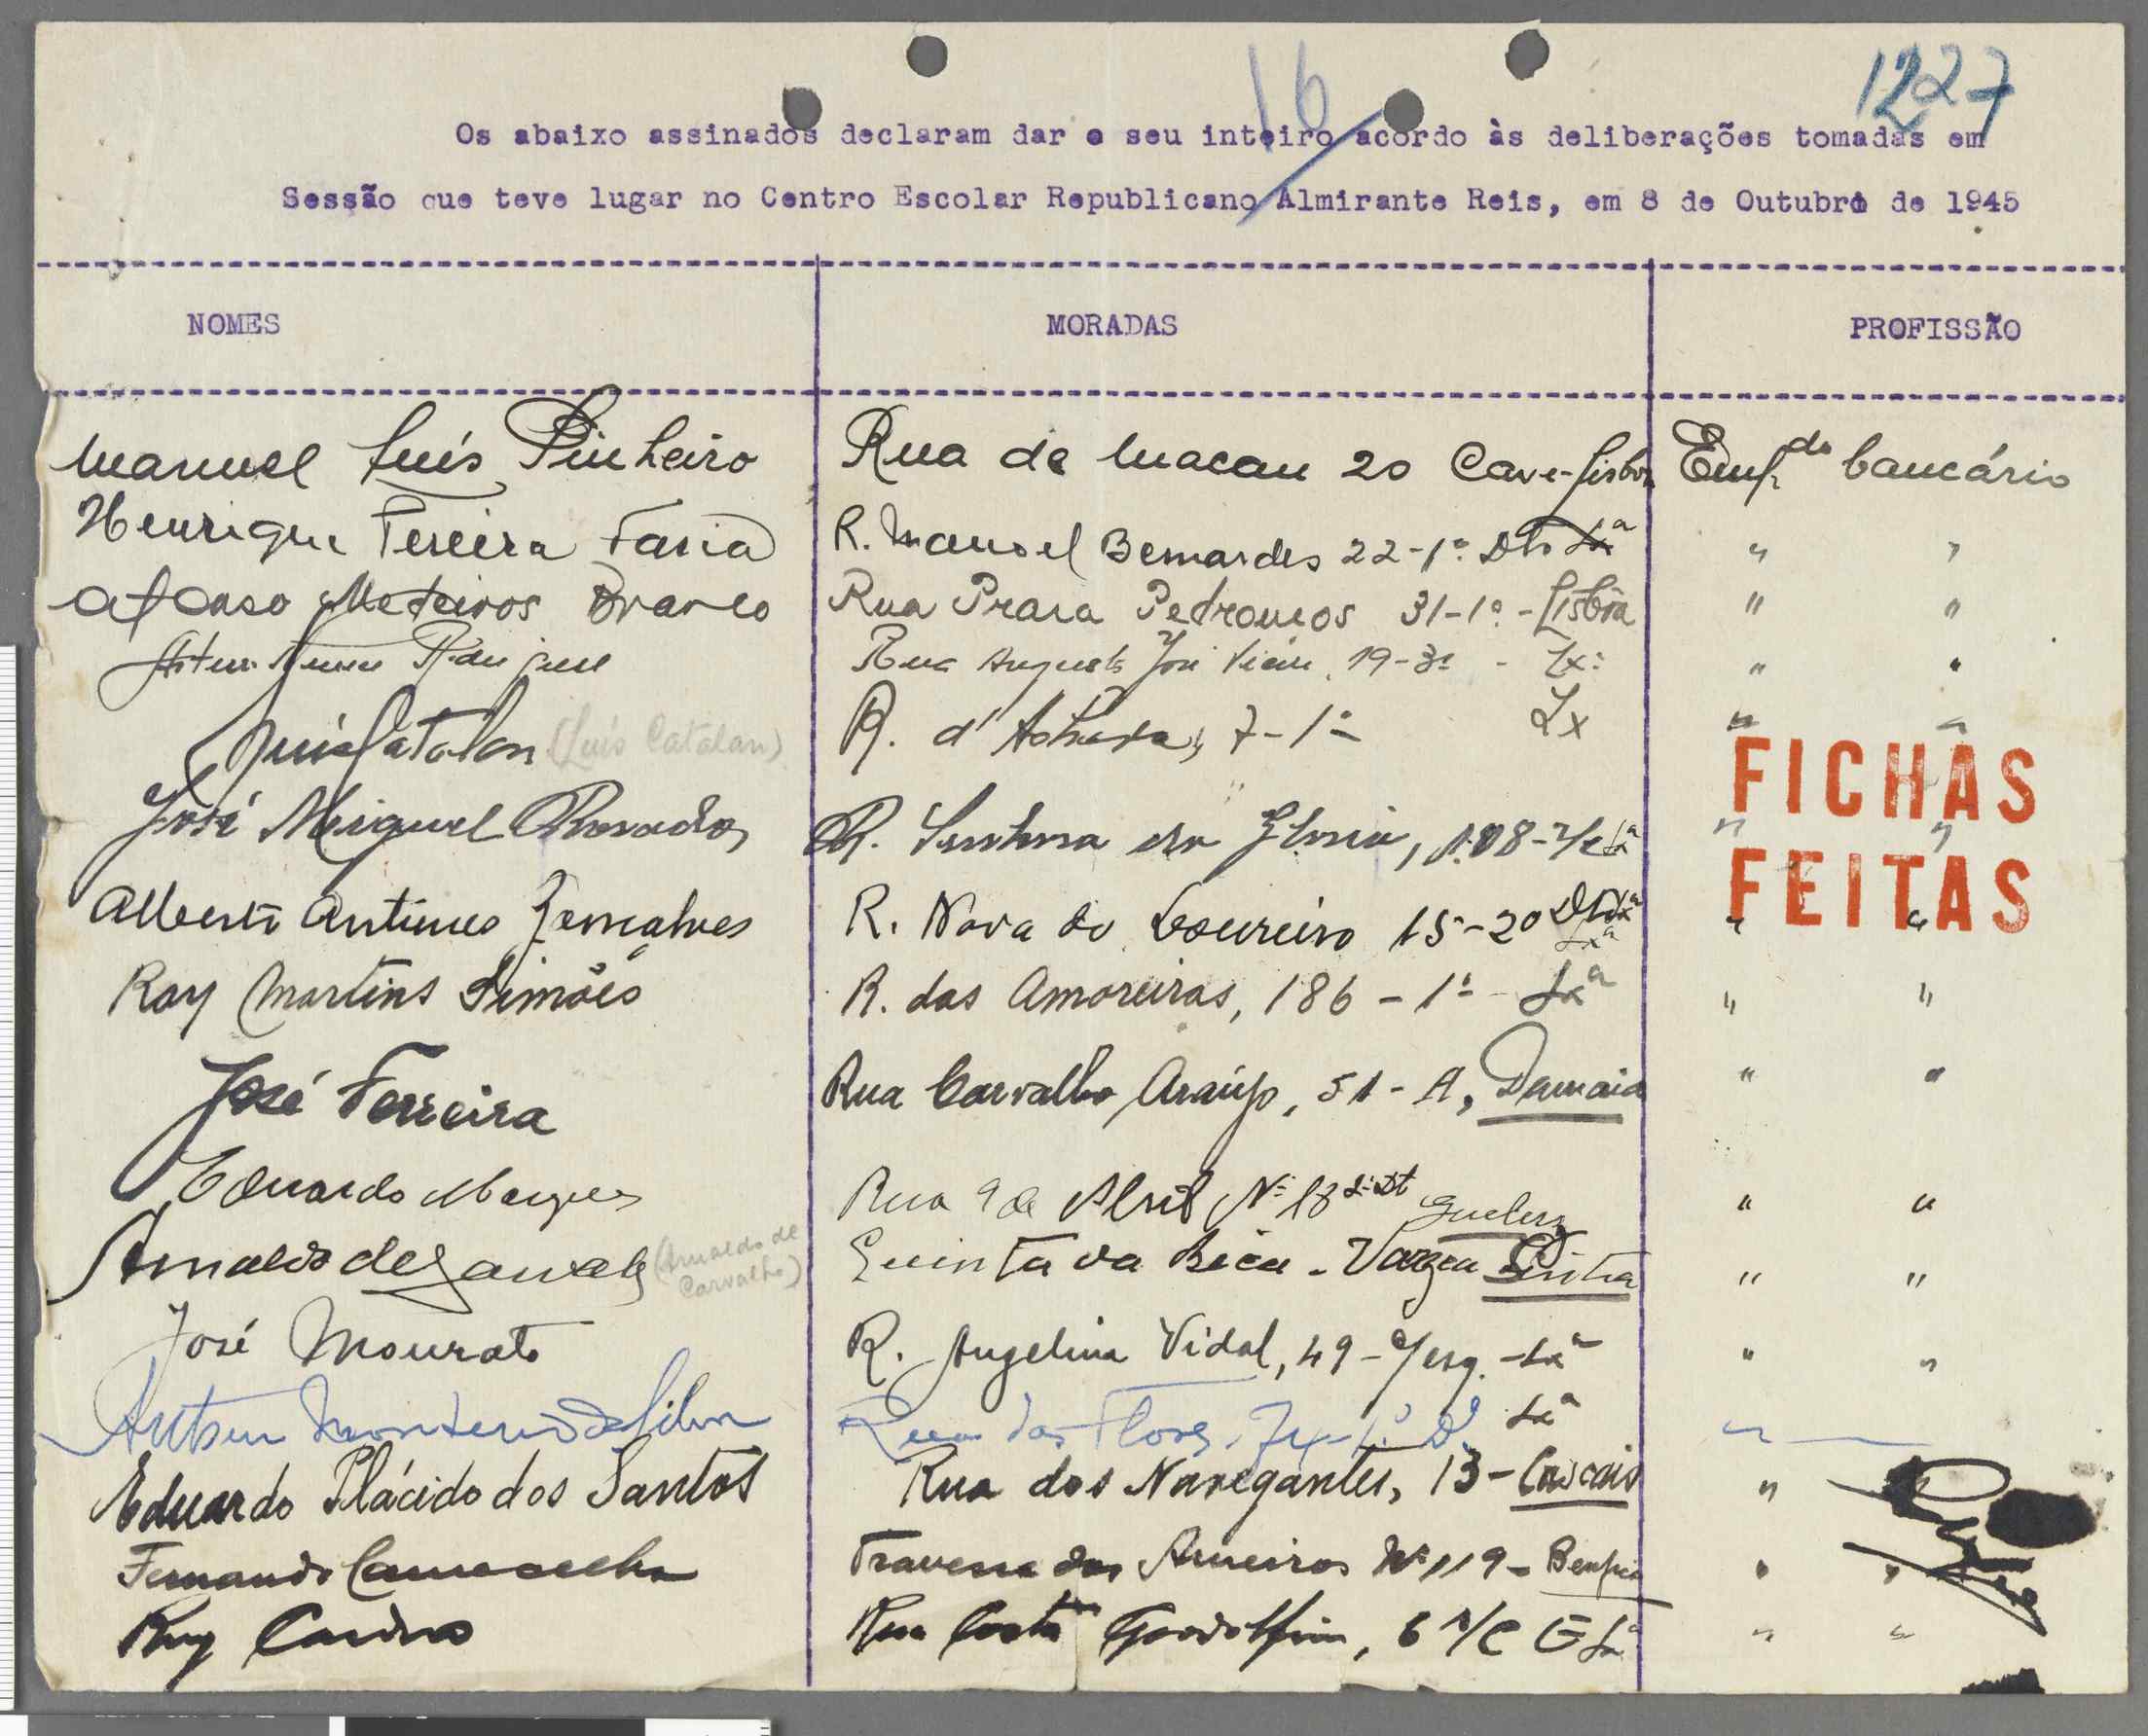 16
1227
Os abaixo assinados declaram dar o seu inteiro acordo às deliberações tomadas em
Sessão que teve lugar no Centro Escolar Republicano Almirante Reis, em 8 de Outubro de 1945
NOMES MORADAS PROFISSÃO
Manuel Luís Pinheiro Rua de Macau 20 Cave-Lisboa Empdo bancário
Henrique Pereira Faria R. Manoel Bernardes 22-1º Dto Lxª " "
Afonso Medeiros Branco Rua Praia Pedrouços 31-1º-Lisbôa " "
Artur Nunes Rua Augusto José Vieira, 19-3º - Lxª " "
Luís Catalan (Luís Catalan) R. d' 7-1º Lx " "
FICHAS
José Miguel R. da Glória, " "
FEITAS
Alberto Antunes Gonçalves R. Nova do Loureiro 15-2º Dto Lxª " "
Ray Martins Simões R. das Amoreiras, 186-1º-Lxª " "
José Ferreira Rua Carvalho Araújo, 51-A, Damaia " "
Eduardo Rua 9 de Abril Nº 18 Dt " "
Arnaldo de Carvalho (Arnaldo de Carvalho) Quinta da Bica - Varzea Sintra " "
José Mourato R. Angelina Vidal, 49-c/esq.-Lxª " "
Artur Monteiro da Silva Rua das Flores, Lxª "
Eduardo Plácido dos Santos Rua dos Navegantes, 13-Cascais "
Fernando Camacho Travessa dos Arneiros Nº 119-Benfica " "
Ruy Rua Costa Goodolfim, 6 R/C E Lxª " "